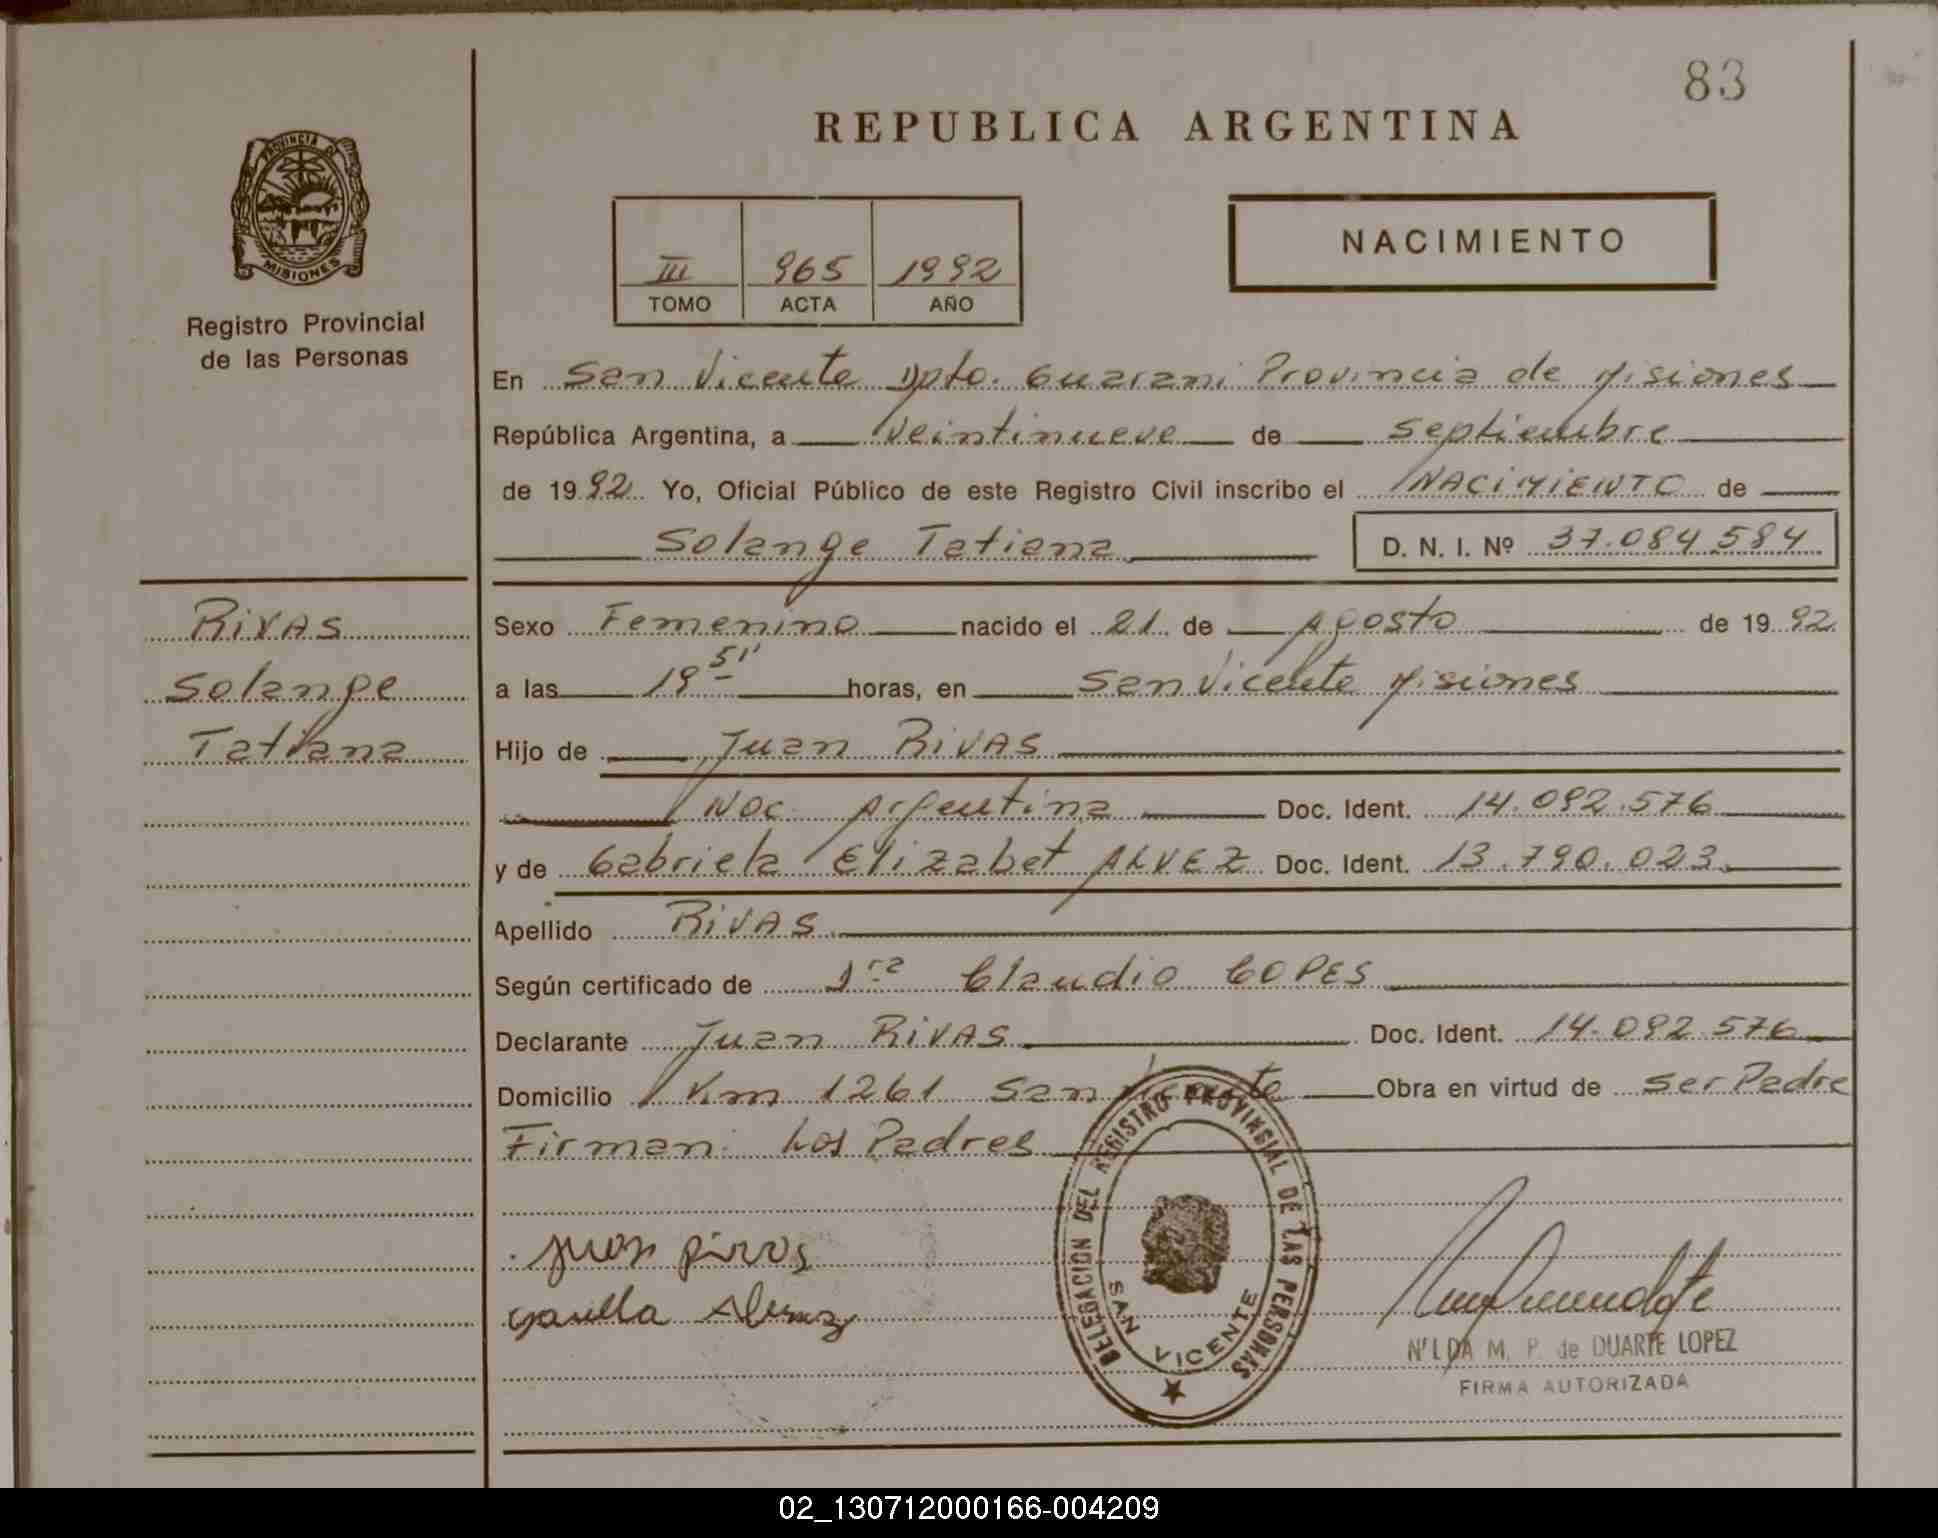 83
REPUBLICA ARGENTINA
PROVINCIA DE
MISIONES
Registro Provincial
de las Personas
III 965 1992
TOMO ACTA AÑO
NACIMIENTO
En San Vicente Dpto. Guarani Provincia de Misiones
República Argentina, a veintinueve de septiembre
de 1992 Yo, Oficial Público de este Registro Civil inscribo el NACIMIENTO de
Solange Tatiana D. N. I. Nº 37.084.584
RIVAS
Solange
Tatiana
Sexo Femenino nacido el 21 de Agosto de 1992
a las 19 51' horas, en San Vicente Misiones
Hijo de Juan RIVAS
Nac. Argentina Doc. Ident. 14.092.576
y de Gabriela Elizabet ALVEZ Doc. Ident. 13.790.023
Apellido RIVAS
Según certificado de Dra Claudio COPES
Declarante Juan RIVAS Doc. Ident. 14.092.576
Domicilio Km 1261 San Vicente Obra en virtud de ser Padre
Firman: Los Padres
DELEGACION DEL REGISTRO PROVINCIAL DE LAS PERSONAS
SAN VICENTE
NILDA M. P. de DUARTE LOPEZ
FIRMA AUTORIZADA
02_130712000166-004209